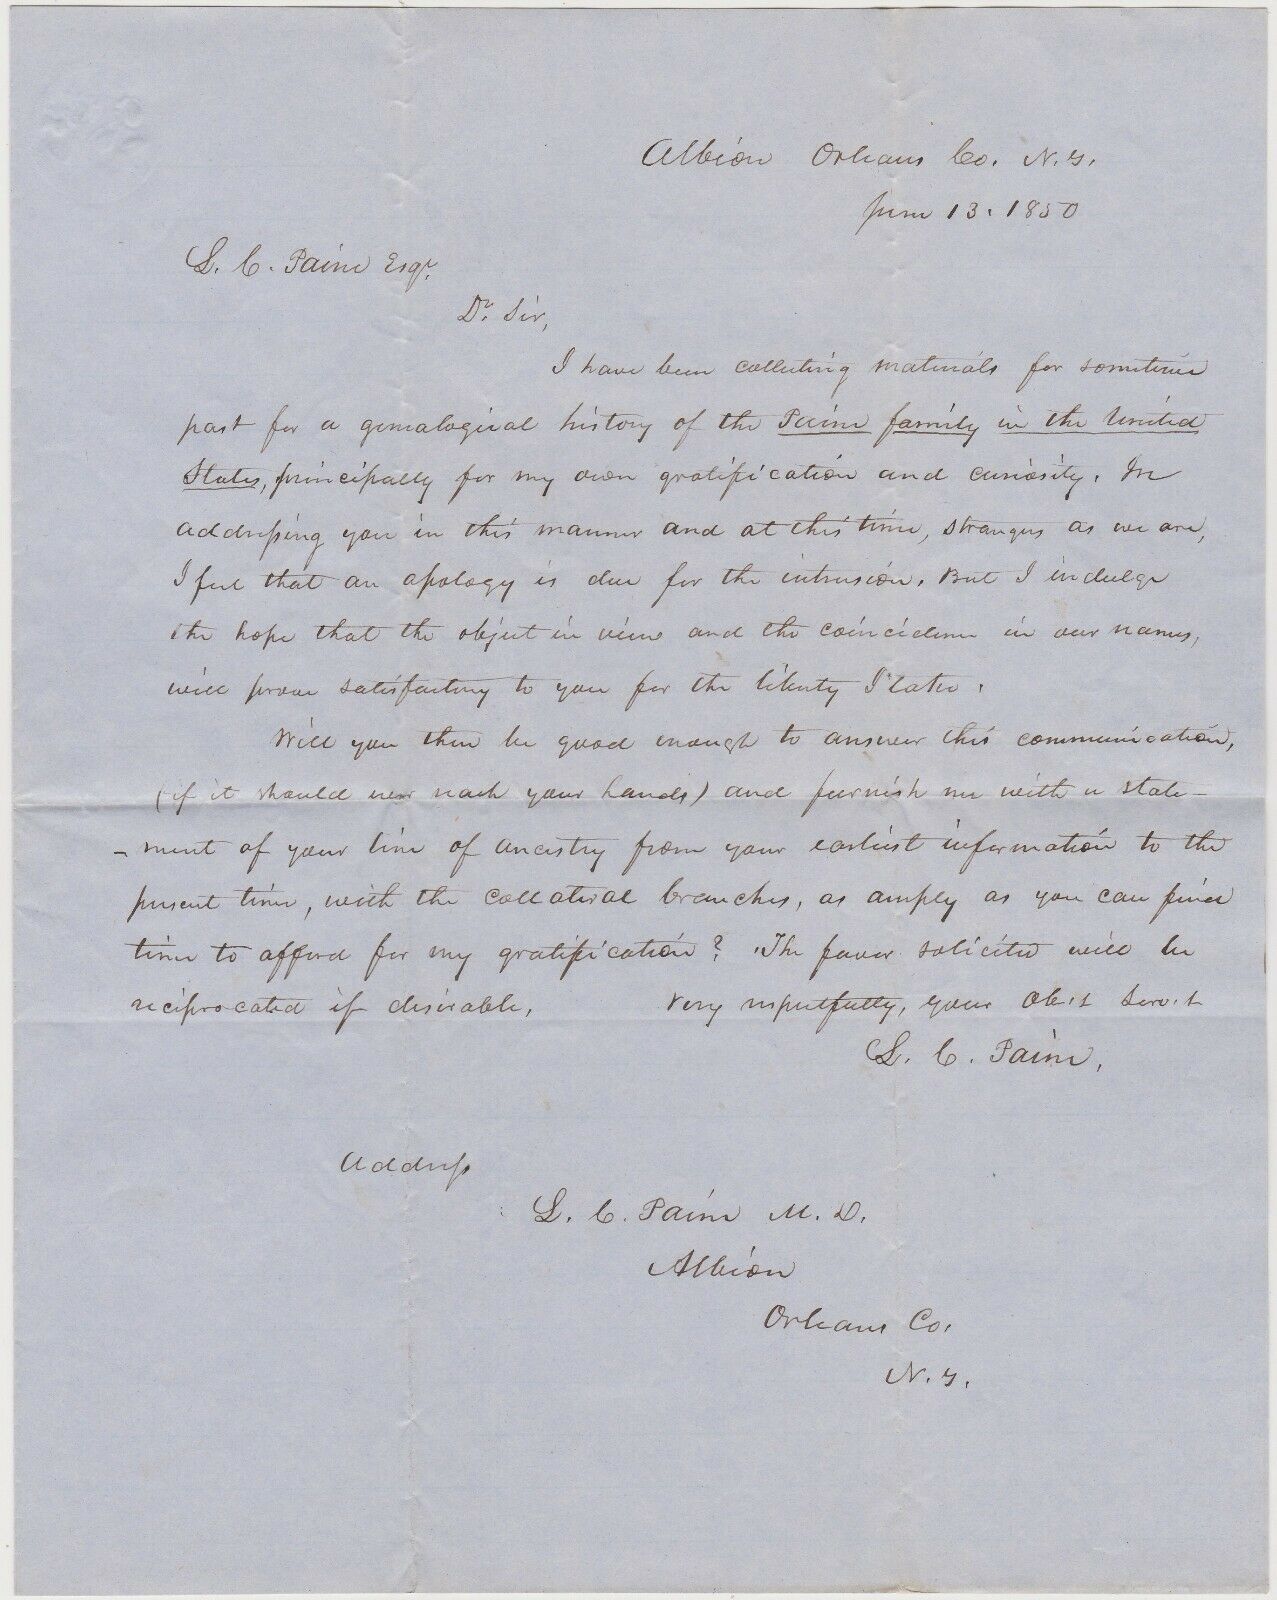 Albion Orleans Co. N.Y.
June 13. 1850
L. C. Paine Esqr.
Dr. Sir,
I have been collecting materials for sometime
past for a genealogical history of the Paine family in the United
States, principally for my own gratification and curiosity. In
addressing you in this manner and at this time, strangers as we are,
I feel that an apology is due for the intrusion. But I indulge
the hope that the object in view and the coincidence in our names,
will prove satisfactory to you for the liberty I take.
Will you then be good enough to answer this communication,
(if it should ever reach your hands) and furnish me with a state-
-ment of your line of ancestry from your earliest information to the
present time, with the collateral branches, as amply as you can find
time to afford for my gratification? The favor solicited will be
reciprocated if desirable. Very respectfully, your Ob.t Serv.t
L. C. Paine.
Address
L. C. Paine M. D.
Albion
Orleans Co.
N. Y.